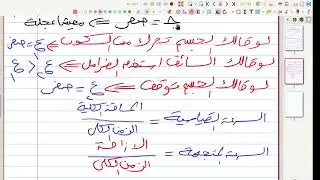 = صفر ⇐ مفيش عجلة
لو قالك الجسم تحرك من السكون ⇐ ع = صفر
لو قالك السائق استخدم الفرامل ⇐ ع > ع
لو قالك الجسم توقف ⇐ ع = صفر
السرعة القياسية = المسافة الكلية / الزمن الكلى
السرعة المتجهة = الازاحة / الزمن الكلى